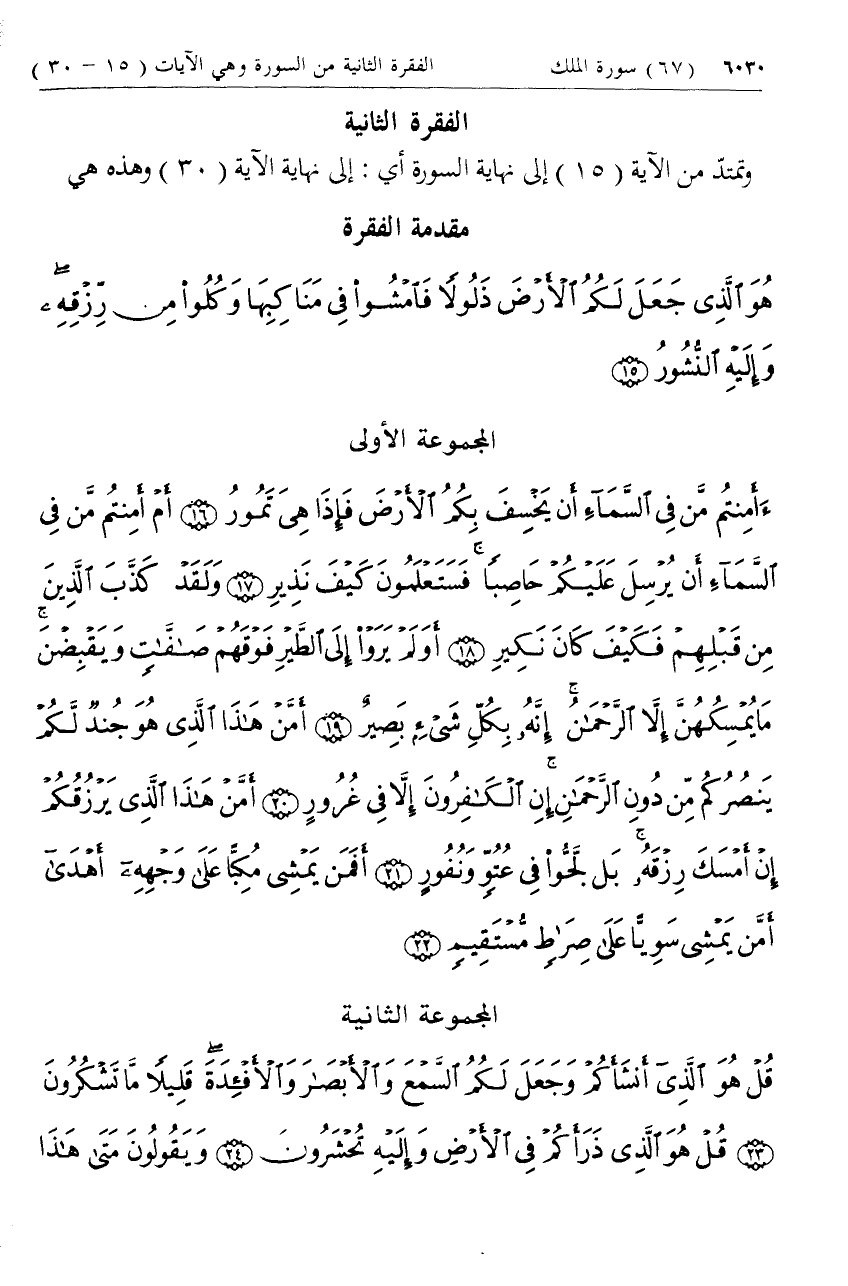 ٦٠٣٠ (٦٧) سورة الملك الفقرة الثانية من السورة وهي الآيات ( ١٥ - ٣٠ )
الفقرة الثانية
وتمتدّ من الآية ( ١٥ ) إلى نهاية السورة أي : إلى نهاية الآية ( ٣٠ ) وهذه هي
مقدمة الفقرة
هُوَ ٱلَّذِى جَعَلَ لَكُمُ ٱلْأَرْضَ ذَلُولًا فَٱمْشُوا۟ فِى مَنَاكِبِهَا وَكُلُوا۟ مِن رِّزْقِهِۦ ۖ
وَإِلَيْهِ ٱلنُّشُورُ ١٥
المجموعة الأولى
ءَأَمِنتُم مَّن فِى ٱلسَّمَآءِ أَن يَخْسِفَ بِكُمُ ٱلْأَرْضَ فَإِذَا هِىَ تَمُورُ ١٦ أَمْ أَمِنتُم مَّن فِى
ٱلسَّمَآءِ أَن يُرْسِلَ عَلَيْكُمْ حَاصِبًا ۖ فَسَتَعْلَمُونَ كَيْفَ نَذِيرِ ١٧ وَلَقَدْ كَذَّبَ ٱلَّذِينَ
مِن قَبْلِهِمْ فَكَيْفَ كَانَ نَكِيرِ ١٨ أَوَلَمْ يَرَوْا۟ إِلَى ٱلطَّيْرِ فَوْقَهُمْ صَـٰٓفَّـٰتٍ وَيَقْبِضْنَ ۚ
مَا يُمْسِكُهُنَّ إِلَّا ٱلرَّحْمَـٰنُ ۚ إِنَّهُۥ بِكُلِّ شَىْءٍۭ بَصِيرٌ ١٩ أَمَّنْ هَـٰذَا ٱلَّذِى هُوَ جُندٌ لَّكُمْ
يَنصُرُكُم مِّن دُونِ ٱلرَّحْمَـٰنِ ۚ إِنِ ٱلْكَـٰفِرُونَ إِلَّا فِى غُرُورٍ ٢٠ أَمَّنْ هَـٰذَا ٱلَّذِى يَرْزُقُكُمْ
إِنْ أَمْسَكَ رِزْقَهُۥ ۚ بَل لَّجُّوا۟ فِى عُتُوٍّ وَنُفُورٍ ٢١ أَفَمَن يَمْشِى مُكِبًّا عَلَىٰ وَجْهِهِۦٓ أَهْدَىٰٓ
أَمَّن يَمْشِى سَوِيًّا عَلَىٰ صِرَٰطٍ مُّسْتَقِيمٍ ٢٢
المجموعة الثانية
قُلْ هُوَ ٱلَّذِىٓ أَنشَأَكُمْ وَجَعَلَ لَكُمُ ٱلسَّمْعَ وَٱلْأَبْصَـٰرَ وَٱلْأَفْـِٔدَةَ ۖ قَلِيلًا مَّا تَشْكُرُونَ
٢٣ قُلْ هُوَ ٱلَّذِى ذَرَأَكُمْ فِى ٱلْأَرْضِ وَإِلَيْهِ تُحْشَرُونَ ٢٤ وَيَقُولُونَ مَتَىٰ هَـٰذَا